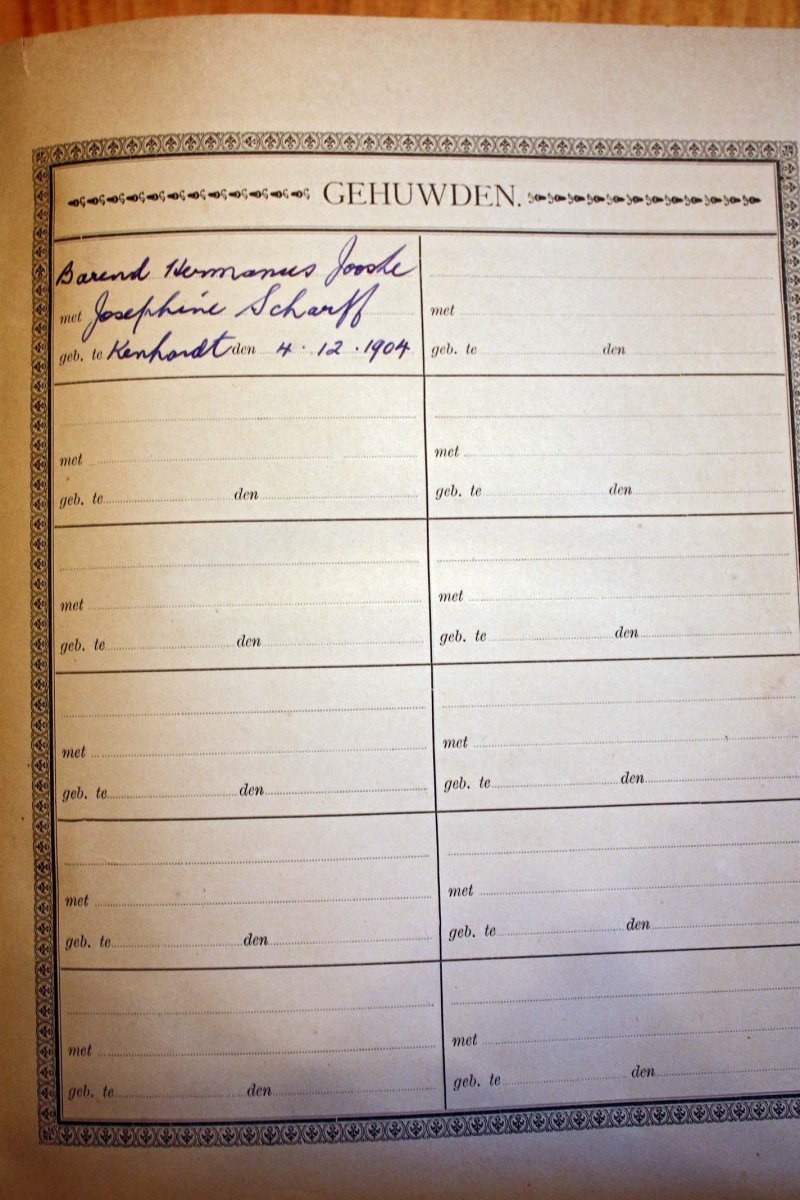 GEHUWDEN.
Barend Hermanus Jooste
met Josephine Scharff
geb. te Kenhardt den 4 . 12 . 1904
met
geb. te den
met
geb. te den
met
geb. te den
met
geb. te den
met
geb. te den
met
geb. te den
met
geb. te den
met
geb. te den
met
geb. te den
met
geb. te den
met
geb. te den